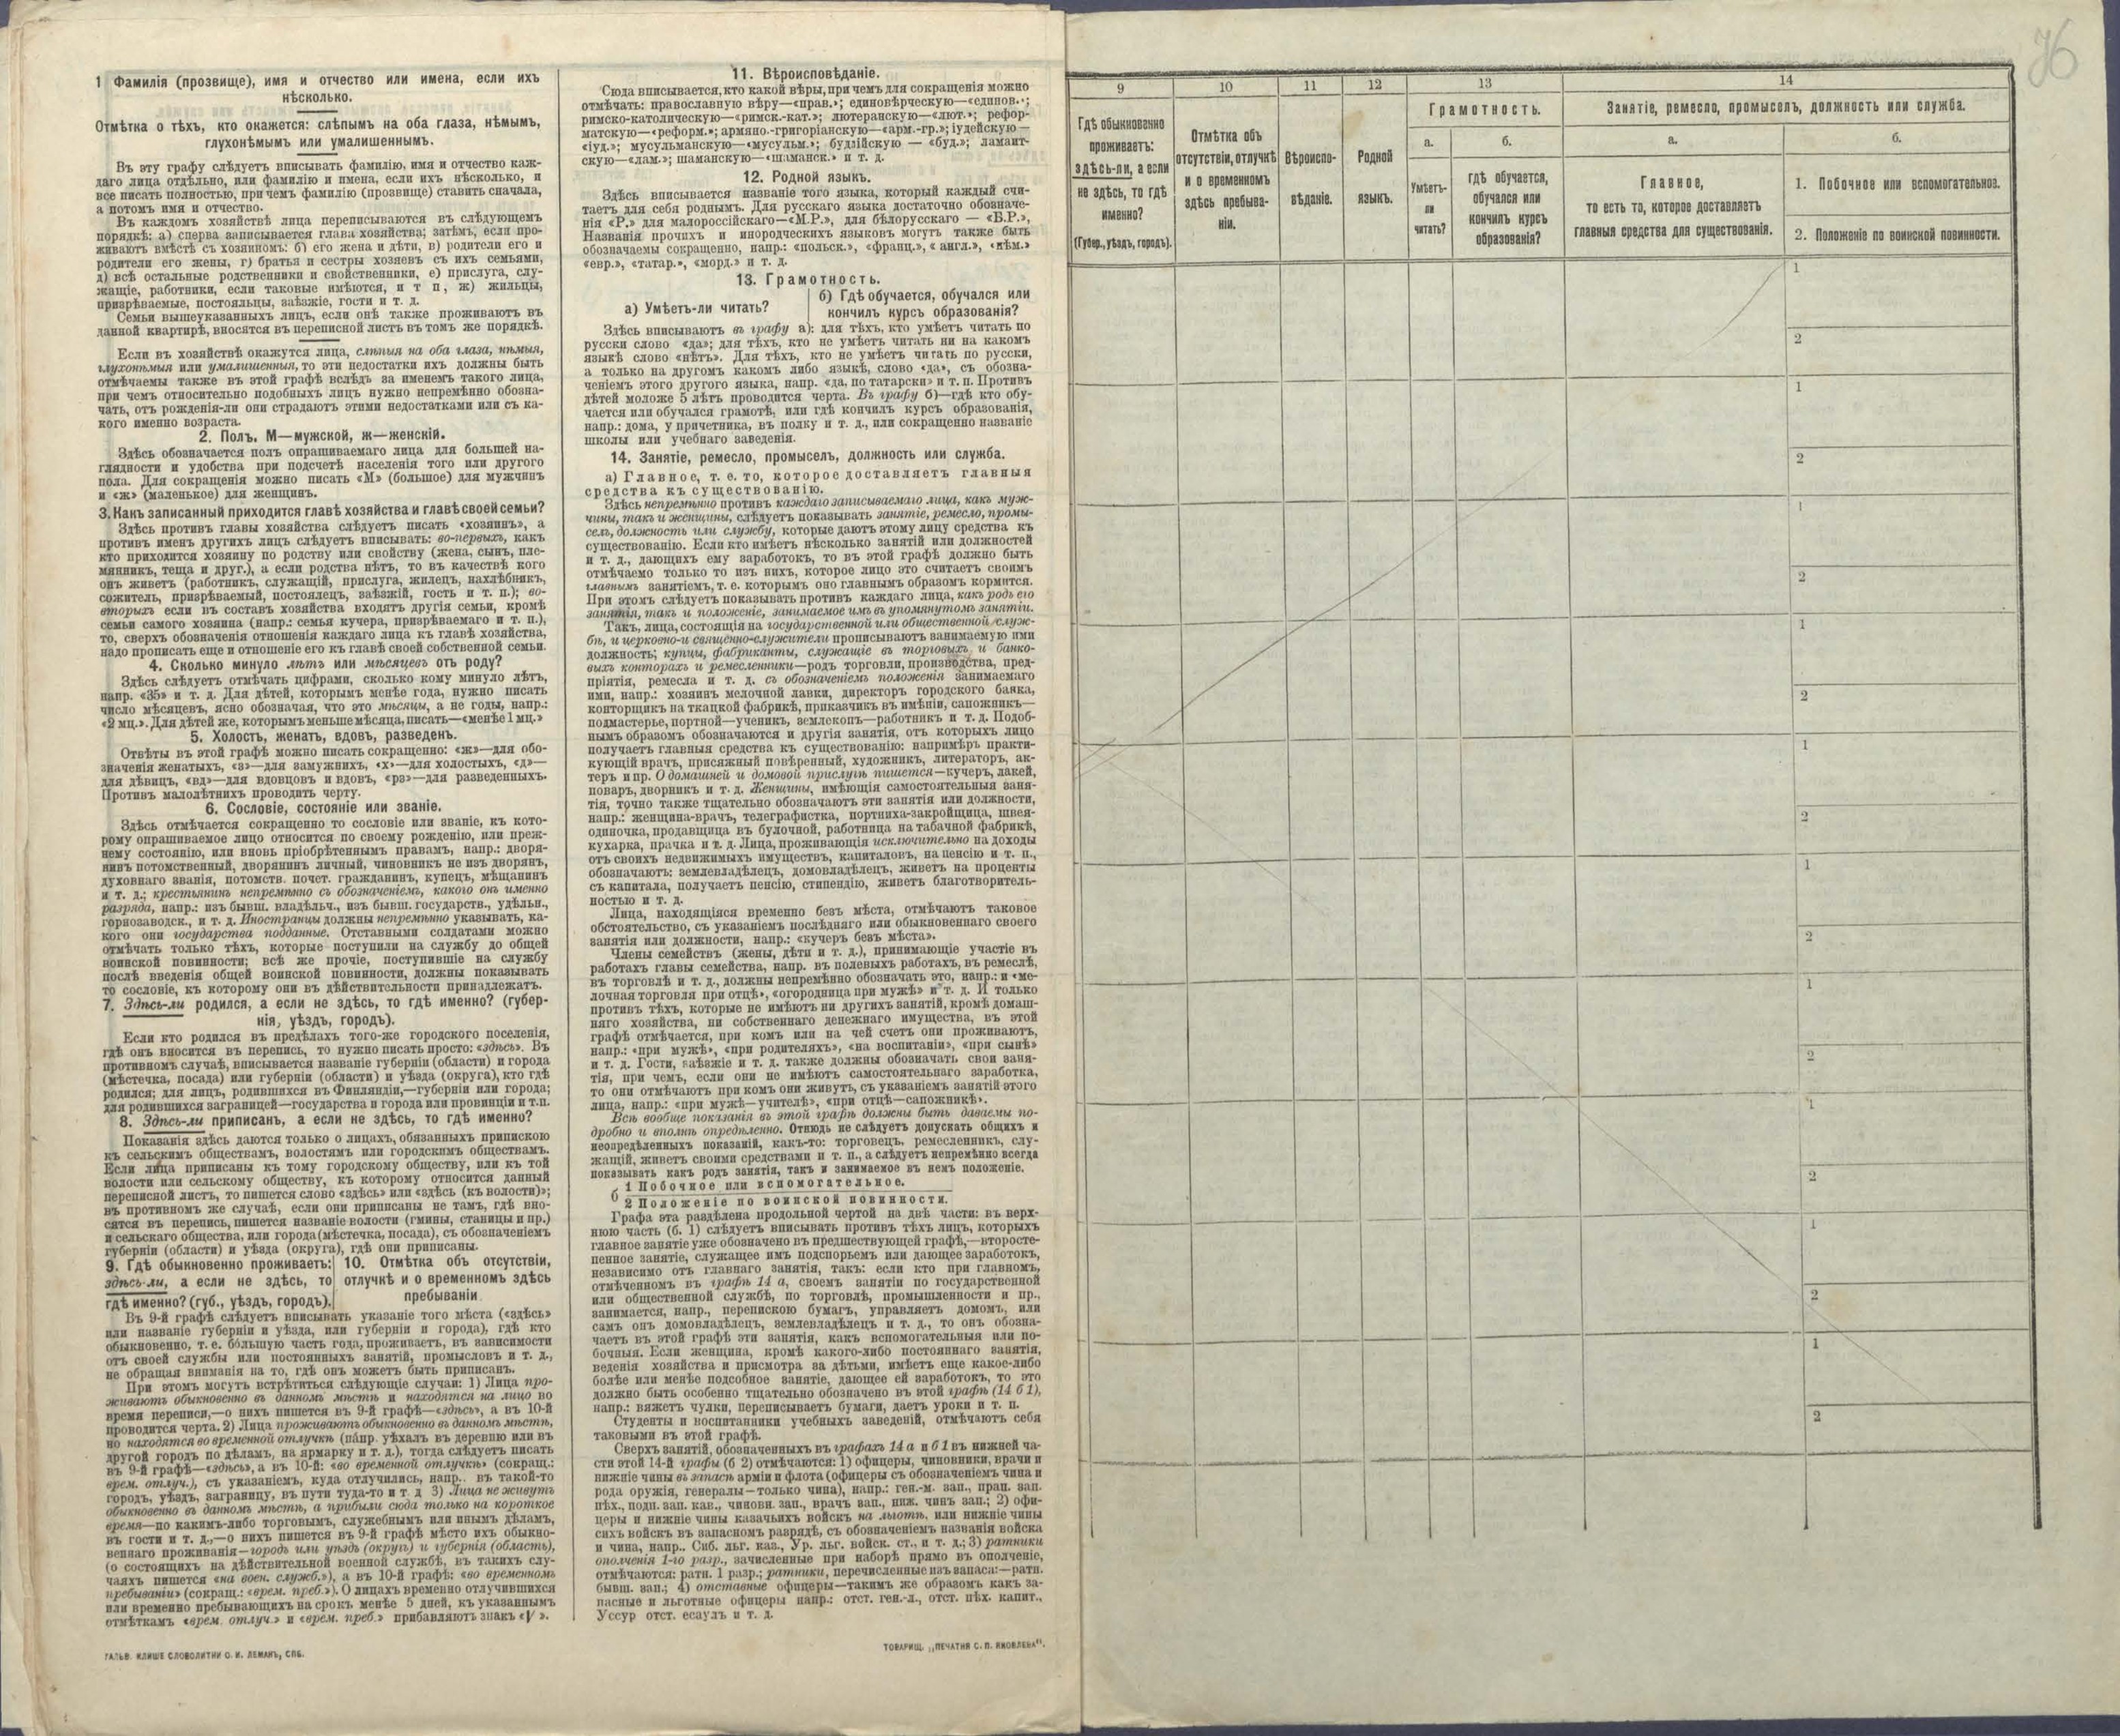 1 Фамилія (прозвище), имя и отчество или имена, если ихъ
нѣсколько.
Отмѣтка о тѣхъ, кто окажется: слѣпымъ на оба глаза, нѣмымъ,
глухонѣмымъ или умалишеннымъ.
Въ эту графу слѣдуетъ вписывать фамилію, имя и отчество каж-
даго лица отдѣльно, или фамилію и имена, если ихъ нѣсколько, и
все писать полностью, при чемъ фамилію (прозвище) ставить сначала,
а потомъ имя и отчество.
Въ каждомъ хозяйствѣ лица переписываются въ слѣдующемъ
порядкѣ: а) сперва записывается глава хозяйства; затѣмъ, если про-
живаютъ вмѣстѣ съ хозяиномъ: б) его жена и дѣти, в) родители его и
родители его жены, г) братья и сестры хозяевъ съ ихъ семьями,
д) всѣ остальные родственники и свойственники, е) прислуга, слу-
жащіе, работники, если таковые имѣются, и т п, ж) жильцы,
призрѣваемые, постояльцы, заѣзжіе, гости и т. д.
Семьи вышеуказанныхъ лицъ, если онѣ также проживаютъ въ
данной квартирѣ, вносятся въ переписной листъ въ томъ же порядкѣ.
Если въ хозяйствѣ окажутся лица, слѣпыя на оба глаза, нѣмыя,
глухонѣмыя или умалишенныя, то эти недостатки ихъ должны быть
отмѣчаемы также въ этой графѣ вслѣдъ за именемъ такого лица,
при чемъ относительно подобныхъ лицъ нужно непремѣнно обозна-
чать, отъ рожденія-ли они страдаютъ этими недостатками или съ ка-
кого именно возраста.
2. Полъ. М—мужской, ж—женскій.
Здѣсь обозначается полъ опрашиваемаго лица для большей на-
глядности и удобства при подсчетѣ населенія того или другого
пола. Для сокращенія можно писать «М» (большое) для мужчинъ
и «ж» (маленькое) для женщинъ.
3. Какъ записанный приходится главѣ хозяйства и главѣ своей семьи?
Здѣсь противъ главы хозяйства слѣдуетъ писать «хозяинъ», а
противъ именъ другихъ лицъ слѣдуетъ вписывать: во-первыхъ, какъ
кто приходится хозяину по родству или свойству (жена, сынъ, пле-
мянникъ, теща и друг.), а если родства нѣтъ, то въ качествѣ кого
онъ живетъ (работникъ, служащій, прислуга, жилецъ, нахлѣбникъ,
сожитель, призрѣваемый, постоялецъ, заѣзжій, гость и т. п.); во-
вторыхъ если въ составъ хозяйства входятъ другія семьи, кромѣ
семьи самого хозяина (напр.: семья кучера, призрѣваемаго и т. п.),
то, сверхъ обозначенія отношенія каждаго лица къ главѣ хозяйства,
надо прописать еще и отношеніе его къ главѣ своей собственной семьи.
4. Сколько минуло лѣтъ или мѣсяцевъ отъ роду?
Здѣсь слѣдуетъ отмѣчать цифрами, сколько кому минуло лѣтъ,
напр. «35» и т. д. Для дѣтей, которымъ менѣе года, нужно писать
число мѣсяцевъ, ясно обозначая, что это мѣсяцы, а не годы, напр.:
«2 мц.». Для дѣтей же, которымъ меньше мѣсяца, писать—«менѣе 1 мц.»
5. Холостъ, женатъ, вдовъ, разведенъ.
Отвѣты въ этой графѣ можно писать сокращенно: «ж»—для обо-
значенія женатыхъ, «з»—для замужнихъ, «х»—для холостыхъ, «д»—
для дѣвицъ, «вд»—для вдовцовъ и вдовъ, «рз»—для разведенныхъ.
Противъ малолѣтнихъ проводить черту.
6. Сословіе, состояніе или званіе.
Здѣсь отмѣчается сокращенно то сословіе или званіе, къ кото-
рому опрашиваемое лицо относится по своему рожденію, или преж-
нему состоянію, или вновь пріобрѣтеннымъ правамъ, напр.: дворя-
нинъ потомственный, дворянинъ личный, чиновникъ не изъ дворянъ,
духовнаго званія, потомств. почет. гражданинъ, купецъ, мѣщанинъ
и т. д.; крестьянинъ непремѣнно съ обозначеніемъ, какого онъ именно
разряда, напр.: изъ бывш. владѣльч., изъ бывш. государств., удѣльн.,
горнозаводск., и т. д. Иностранцы должны непремѣнно указывать, ка-
кого они государства подданные. Отставными солдатами можно
отмѣчать только тѣхъ, которые поступили на службу до общей
воинской повинности; всѣ же прочіе, поступившіе на службу
послѣ введенія общей воинской повинности, должны показывать
то сословіе, къ которому они въ дѣйствительности принадлежатъ.
7. Здѣсь-ли родился, а если не здѣсь, то гдѣ именно? (губер-
нія, уѣздъ, городъ).
Если кто родился въ предѣлахъ того-же городского поселенія,
гдѣ онъ вносится въ перепись, то нужно писать просто: «здѣсь». Въ
противномъ случаѣ, вписывается названіе губерніи (области) и города
(мѣстечка, посада) или губерніи (области) и уѣзда (округа), кто гдѣ
родился; для лицъ, родившихся въ Финляндіи,—губерніи или города;
для родившихся заграницей—государства и города или провинціи и т.п.
8. Здѣсь-ли приписанъ, а если не здѣсь, то гдѣ именно?
Показанія здѣсь даются только о лицахъ, обязанныхъ припискою
къ сельскимъ обществамъ, волостямъ или городскимъ обществамъ.
Если лица приписаны къ тому городскому обществу, или къ той
волости или сельскому обществу, къ которому относится данный
переписной листъ, то пишется слово «здѣсь» или «здѣсь (къ волости)»;
въ противномъ же случаѣ, если они приписаны не тамъ, гдѣ вно-
сятся въ перепись, пишется названіе волости (гмины, станицы и пр.)
и сельскаго общества, или города (мѣстечка, посада), съ обозначеніемъ
губерніи (области) и уѣзда (округа), гдѣ они приписаны.
9. Гдѣ обыкновенно проживаетъ:
здѣсь-ли, а если не здѣсь, то
гдѣ именно? (губ., уѣздъ, городъ).
10. Отмѣтка объ отсутствіи,
отлучкѣ и о временномъ здѣсь
пребываніи
Въ 9-й графѣ слѣдуетъ вписывать указаніе того мѣста («здѣсь»
или названіе губерніи и уѣзда, или губерніи и города), гдѣ кто
обыкновенно, т. е. большую часть года, проживаетъ, въ зависимости
отъ своей службы или постоянныхъ занятій, промысловъ и т. д.,
не обращая вниманія на то, гдѣ онъ можетъ быть приписанъ.
При этомъ могутъ встрѣтиться слѣдующіе случаи: 1) Лица про-
живаютъ обыкновенно въ данномъ мѣстѣ и находятся на лицо во
время переписи,—о нихъ пишется въ 9-й графѣ—«здѣсь», а въ 10-й
проводится черта. 2) Лица проживаютъ обыкновенно въ данномъ мѣстѣ,
но находятся во временной отлучкѣ (напр. уѣхалъ въ деревню или въ
другой городъ по дѣламъ, на ярмарку и т. д.), тогда слѣдуетъ писать
въ 9-й графѣ—«здѣсь», а въ 10-й: «во временной отлучкѣ» (сокращ.:
врем. отлуч.), съ указаніемъ, куда отлучились, напр.. въ такой-то
городъ, уѣздъ, заграницу, въ пути туда-то и т. д 3) Лица не живутъ
обыкновенно въ данномъ мѣстѣ, а прибыли сюда только на короткое
время—по какимъ-либо торговымъ, служебнымъ или инымъ дѣламъ,
въ гости и т. д.,—о нихъ пишется въ 9-й графѣ мѣсто ихъ обыкно-
веннаго проживанія—городъ или уѣздъ (округъ) и губернія (область),
(о состоящихъ на дѣйствительной военной службѣ, въ такихъ слу-
чаяхъ пишется «на воен. служб.»), а въ 10-й графѣ: «во временномъ
пребываніи» (сокращ.: «врем. преб.»). О лицахъ временно отлучившихся
или временно пребывающихъ на срокъ менѣе 5 дней, къ указаннымъ
отмѣткамъ «врем. отлуч.» и «врем. преб.» прибавляютъ знакъ «V».
ГАЛЬВ. КЛИШЕ СЛОВОЛИТНИ О. И. ЛЕМАНЪ, СПБ.
11. Вѣроисповѣданіе.
Сюда вписывается, кто какой вѣры, при чемъ для сокращенія можно
отмѣчать: православную вѣру—«прав.»; единовѣрческую—«единов.»;
римско-католическую—«римск.-кат.»; лютеранскую—«лют.»; рефор-
матскую—«реформ.»; армяно-григоріанскую—«арм.-гр.»; іудейскую—
«іуд.»; мусульманскую—«мусульм.»; буддійскую — «буд.»; ламаит-
скую—«лам.»; шаманскую—«шаманск.» и т. д.
12. Родной языкъ.
Здѣсь вписывается названіе того языка, который каждый счи-
таетъ для себя роднымъ. Для русскаго языка достаточно обозначе-
нія «Р.» для малороссійскаго—«М.Р.», для бѣлорусскаго — «Б.Р.»,
Названія прочихъ и инородческихъ языковъ могутъ также быть
обозначаемы сокращенно, напр: «польск.», «франц.», «англ.», «нѣм.»
«евр.», «татар.», «морд.» и т. д.
13. Грамотность.
а) Умѣетъ-ли читать?
б) Гдѣ обучается, обучался или
кончилъ курсъ образованія?
Здѣсь вписываютъ въ графу а): для тѣхъ, кто умѣетъ читать по
русски слово «да»; для тѣхъ, кто не умѣетъ читать ни на какомъ
языкѣ слово «нѣтъ». Для тѣхъ, кто не умѣетъ читать по русски,
а только на другомъ какомъ либо языкѣ, слово «да», съ обозна-
ченіемъ этого другого языка, напр. «да, по татарски» и т. п. Противъ
дѣтей моложе 5 лѣтъ проводится черта. Въ графу б)—гдѣ кто обу-
чается или обучался грамотѣ, или гдѣ кончилъ курсъ образованія,
напр.: дома, у причетника, въ полку и т. д., или сокращенно названіе
школы или учебнаго заведенія.
14. Занятіе, ремесло, промыселъ, должность или служба.
а) Главное, т. е. то, которое доставляетъ главныя
средства къ существованію.
Здѣсь непремѣнно противъ каждаго записываемаго лица, какъ муж-
чины, такъ и женщины, слѣдуетъ показывать занятіе, ремесло, промы-
селъ, должность или службу, которые даютъ этому лицу средства къ
существованію. Если кто имѣетъ нѣсколько занятій или должностей
и т. д., дающихъ ему заработокъ, то въ этой графѣ должно быть
отмѣчаемо только то изъ нихъ, которое лицо это считаетъ своимъ
главнымъ занятіемъ, т. е. которымъ оно главнымъ образомъ кормится.
При этомъ слѣдуетъ показывать противъ каждаго лица, какъ родъ его
занятія, такъ и положеніе, занимаемое имъ въ упомянутомъ занятіи.
Такъ, лица, состоящія на государственной или общественной служ-
бѣ, и церковно-и священно-служители прописываютъ занимаемую ими
должность; купцы, фабриканты, служащіе въ торговыхъ и банко-
выхъ конторахъ и ремесленники—родъ торговли, производства, пред-
пріятія, ремесла и т. д. съ обозначеніемъ положенія занимаемаго
ими, напр.: хозяинъ мелочной лавки, директоръ городского банка,
конторщикъ на ткацкой фабрикѣ, приказчикъ въ имѣніи, сапожникъ—
подмастерье, портной—ученикъ, землекопъ—работникъ и т. д. Подоб-
нымъ образомъ обозначаются и другія занятія, отъ которыхъ лицо
получаетъ главныя средства къ существованію: напримѣръ практи-
кующій врачъ, присяжный повѣренный, художникъ, литераторъ, ак-
теръ и пр. О домашней и домовой прислугѣ пишется—кучеръ, лакей,
поваръ, дворникъ и т. д. Женщины, имѣющія самостоятельныя заня-
тія, точно также тщательно обозначаютъ эти занятія или должности,
напр.: женщина-врачъ, телеграфистка, портниха-закройщица, швея-
одиночка, продавщица въ булочной, работница на табачной фабрикѣ,
кухарка, прачка и т. д. Лица, проживающія исключительно на доходы
отъ своихъ недвижимыхъ имуществъ, капиталовъ, на пенсію и т. п.,
обозначаютъ: землевладѣлецъ, домовладѣлецъ, живетъ на проценты
съ капитала, получаетъ пенсію, стипендію, живетъ благотворитель-
ностью и т. д.
Лица, находящіяся временно безъ мѣста, отмѣчаютъ таковое
обстоятельство, съ указаніемъ послѣдняго или обыкновеннаго своего
занятія или должности, напр.: «кучеръ безъ мѣста».
Члены семействъ (жены, дѣти и т. д.), принимающіе участіе въ
работахъ главы семейства, напр. въ полевыхъ работахъ, въ ремеслѣ,
въ торговлѣ и т. д., должны непремѣнно обозначать это, напр.: и «ме-
лочная торговля при отцѣ», «огородница при мужѣ» и т. д. И только
противъ тѣхъ, которые не имѣютъ ни другихъ занятій, кромѣ домаш-
няго хозяйства, ни собственнаго денежнаго имущества, въ этой
графѣ отмѣчается, при комъ или на чей счетъ они проживаютъ,
напр.: «при мужѣ», «при родителяхъ», «на воспитаніи», «при сынѣ»
и т. д. Гости, заѣзжіе и т. д. также должны обозначать свои заня-
тія, при чемъ, если они не имѣютъ самостоятельнаго заработка,
то они отмѣчаютъ при комъ они живутъ, съ указаніемъ занятій этого
лица, напр.: «при мужѣ—учителѣ», «при отцѣ—сапожникѣ».
Всѣ вообще показанія въ этой графѣ должны быть даваемы по-
дробно и вполнѣ опредѣленно. Отнюдь не слѣдуетъ допускать общихъ и
неопредѣленныхъ показаній, какъ-то: торговецъ, ремесленникъ, слу-
жащій, живетъ своими средствами и т. п., а слѣдуетъ непремѣнно всегда
показывать какъ родъ занятія, такъ и занимаемое въ немъ положеніе.
б 1 Побочное или вспомогательное.
2 Положеніе по воинской повинности.
Графа эта раздѣлена продольной чертой на двѣ части: въ верх-
нюю часть (б. 1) слѣдуетъ вписывать противъ тѣхъ лицъ, которыхъ
главное занятіе уже обозначено въ предшествующей графѣ,—второсте-
пенное занятіе, служащее имъ подспорьемъ или дающее заработокъ,
независимо отъ главнаго занятія, такъ: если кто при главномъ,
отмѣченномъ въ графѣ 14 а, своемъ занятіи по государственной
или общественной службѣ, по торговлѣ, промышленности и пр.,
занимается, напр., перепискою бумагъ, управляетъ домомъ, или
самъ онъ домовладѣлецъ, землевладѣлецъ и т. д., то онъ обозна-
чаетъ въ этой графѣ эти занятія, какъ вспомогательныя или по-
бочныя. Если женщина, кромѣ какого-либо постояннаго занятія,
веденія хозяйства и присмотра за дѣтьми, имѣетъ еще какое-либо
болѣе или менѣе подсобное занятіе, дающее ей заработокъ, то это
должно быть особенно тщательно обозначено въ этой графѣ (14 б 1),
напр.: вяжетъ чулки, переписываетъ бумаги, даетъ уроки и т. п.
Студенты и воспитанники учебныхъ заведеній, отмѣчаютъ себя
таковыми въ этой графѣ.
Сверхъ занятій, обозначенныхъ въ графахъ 14 а и б 1 въ нижней ча-
сти этой 14-й графы (б 2) отмѣчаются: 1) офицеры, чиновники, врачи и
нижніе чины въ запасѣ арміи и флота (офицеры съ обозначеніемъ чина и
рода оружія, генералы—только чина), напр.: ген.-м. зап., прап. зап.
пѣх., подп. зап. кав., чиновн. зап., врачъ зап., ниж. чинъ зап.; 2) офи-
церы и нижніе чины казачьихъ войскъ на льготѣ, или нижніе чины
сихъ войскъ въ запасномъ разрядѣ, съ обозначеніемъ названія войска
и чина, напр.. Сиб. льг. каз., Ур. льг. войск. ст., и т. д.; 3) ратники
ополченія 1-го разр., зачисленные при наборѣ прямо въ ополченіе,
отмѣчаются: ратн. 1 разр.; ратники, перечисленные изъ запаса:—ратн.
бывш. зап.; 4) отставные офицеры—такимъ же образомъ какъ за-
пасные и льготные офицеры напр.: отст. ген.-л., отст. пѣх. капит.,
Уссур отст. есаулъ и т. д.
ТОВАРИЩ. „ПЕЧАТНЯ С. П. ЯКОВЛЕВА“.
76
9
Гдѣ обыкновенно
проживаетъ:
здѣсь-ли, а если
не здѣсь, то гдѣ
именно?
(Губер., уѣздъ, городъ).
10
Отмѣтка объ
отсутствіи, отлучкѣ
и о временномъ
здѣсь пребыва-
ніи.
11
Вѣроиспо-
вѣданіе.
12
Родной
языкъ.
13
Грамотность.
а.
Умѣетъ-
ли
читать?
б.
гдѣ обучается,
обучался или
кончилъ курсъ
образованія?
14
Занятіе, ремесло, промыселъ, должность или служба.
а.
Главное,
то есть то, которое доставляетъ
главныя средства для существованія.
б.
1. Побочное или вспомогательное.
2. Положеніе по воинской повинности.
1
2
1
2
1
2
1
2
1
2
1
2
1
2
1
2
1
2
1
2